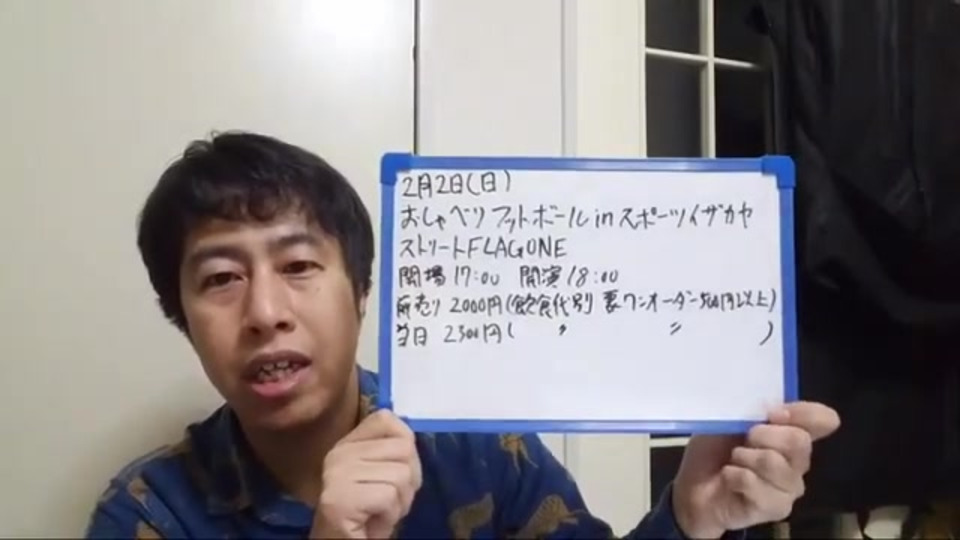 2月2日(日)
おしゃべりフットボール in スポーツイザカヤ
ストリートFLAGONE
開場 17:00 開演 18:00
前売り 2000円(飲食代別 要ワンオーダー500円以上)
当日 2500円( 〃 〃 )